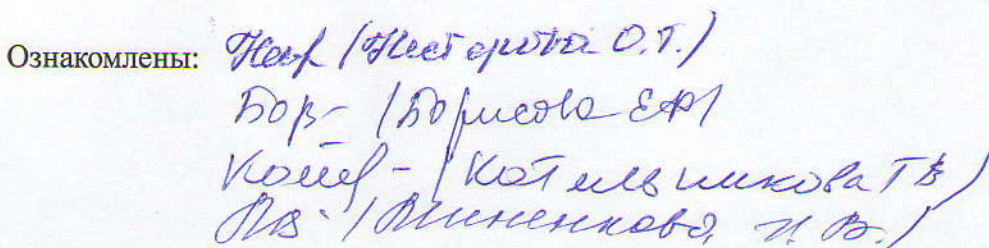 Ознакомлены: (Нестерова О.Т.)
Бор- (Борисова ЕФ)
Котел- (Котельникова ТВ)
(Писненкова, Н.В.)